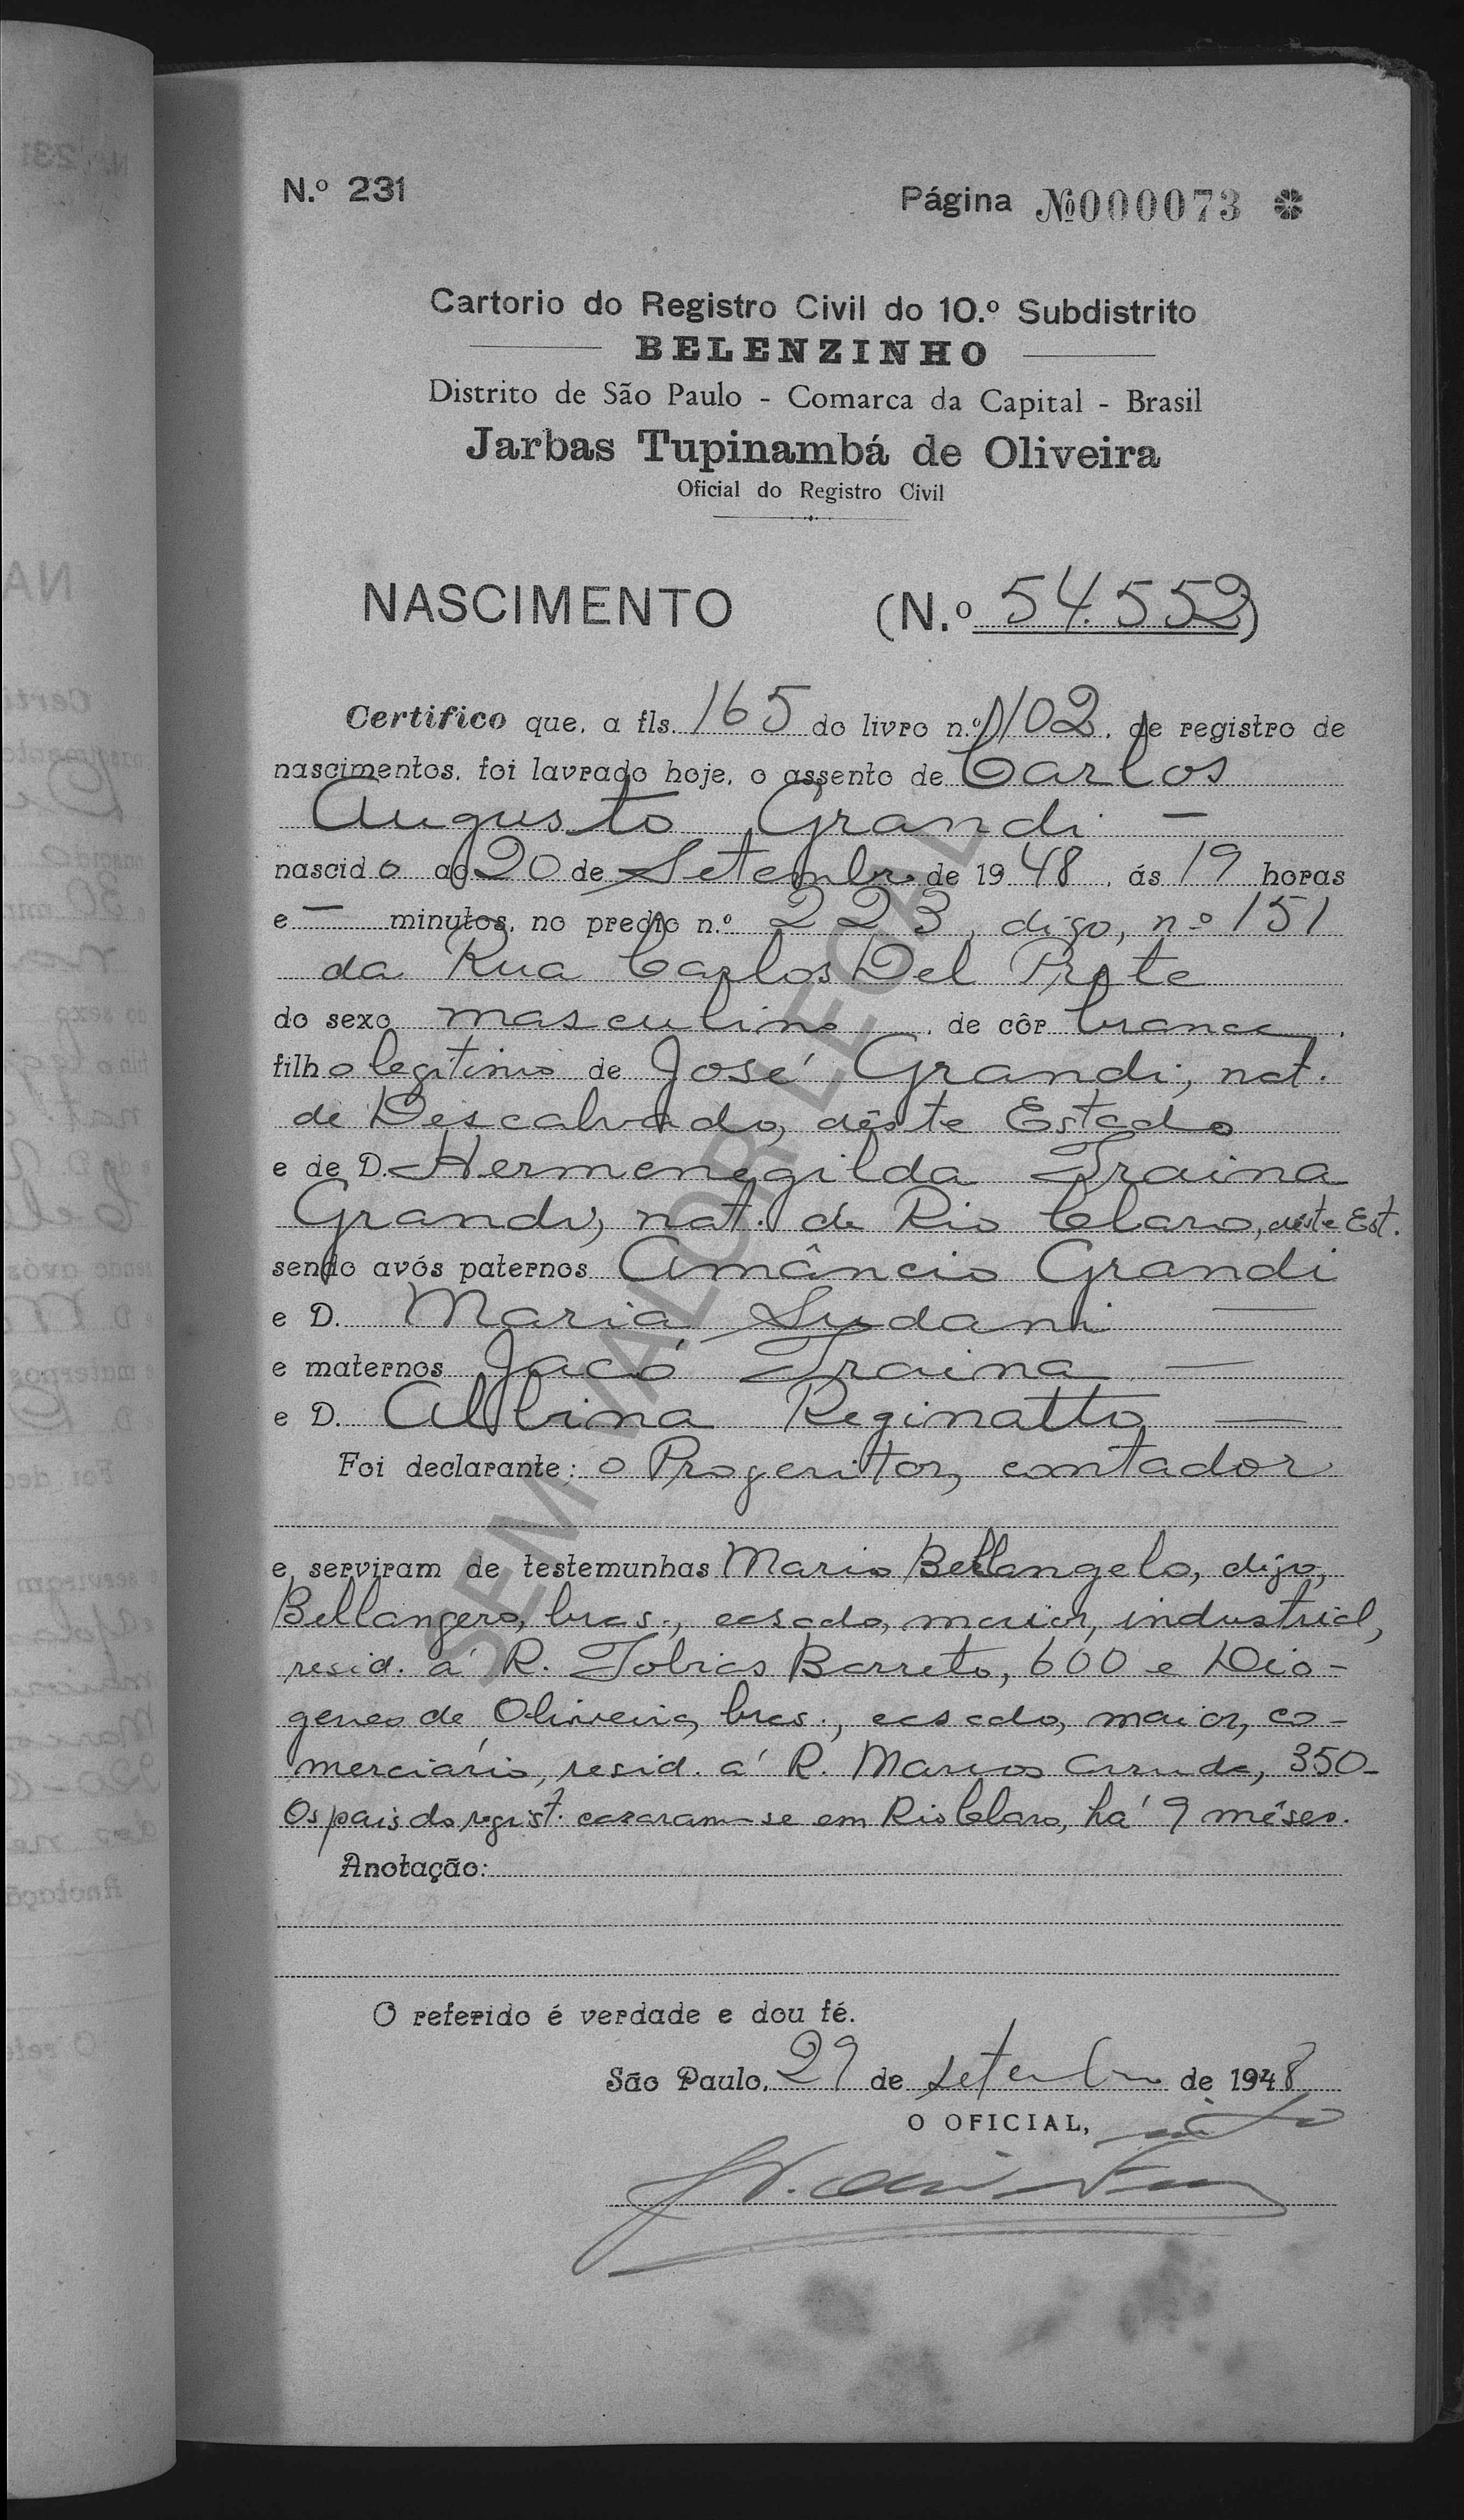 N.º 231
Página №000073
Cartorio do Registro Civil do 10.º Subdistrito
BELENZINHO
Distrito de São Paulo - Comarca da Capital - Brasil
Jarbas Tupinambá de Oliveira
Oficial do Registro Civil
NASCIMENTO (N.º 54.552)
Certifico que, a fls. 165 do livro n.º 102, de registro de
nascimentos, foi lavrado hoje, o assento de Carlos
Augusto Grandi —
nascido ao 20 de Setembro de 1948, ás 19 horas
e — minutos, no predio n.º 223, digo, nº 151
da Rua Carlos Del Prete
do sexo masculino, de côr branca,
filho legítimo de José Grandi, nat.
de Descalvado, dêste Estado
e de D. Hermenegilda Traina
Grandi, nat. de Rio Claro, dêste Est.
sendo avós paternos Amâncio Grandi
e D. Maria Sudani —
e maternos Jacó Traina —
e D. Albina Reginatto —
Foi declarante: o Progenitor, contador
e serviram de testemunhas Mario Bellangelo, digo,
Bellangero, bras., casado, maior, industrial,
resid. á R. Tobias Barreto, 600 e Dio-
genes de Oliveira, bras., casado, maior, co-
merciário, resid. á R. Marcos Arruda, 350-
Os pais do regist. casaram-se em Rio Claro, há 9 mêses.
Anotação:
O referido é verdade e dou fé.
São Paulo, 29 de setembro de 1948
O OFICIAL,
SEM VALOR LEGAL